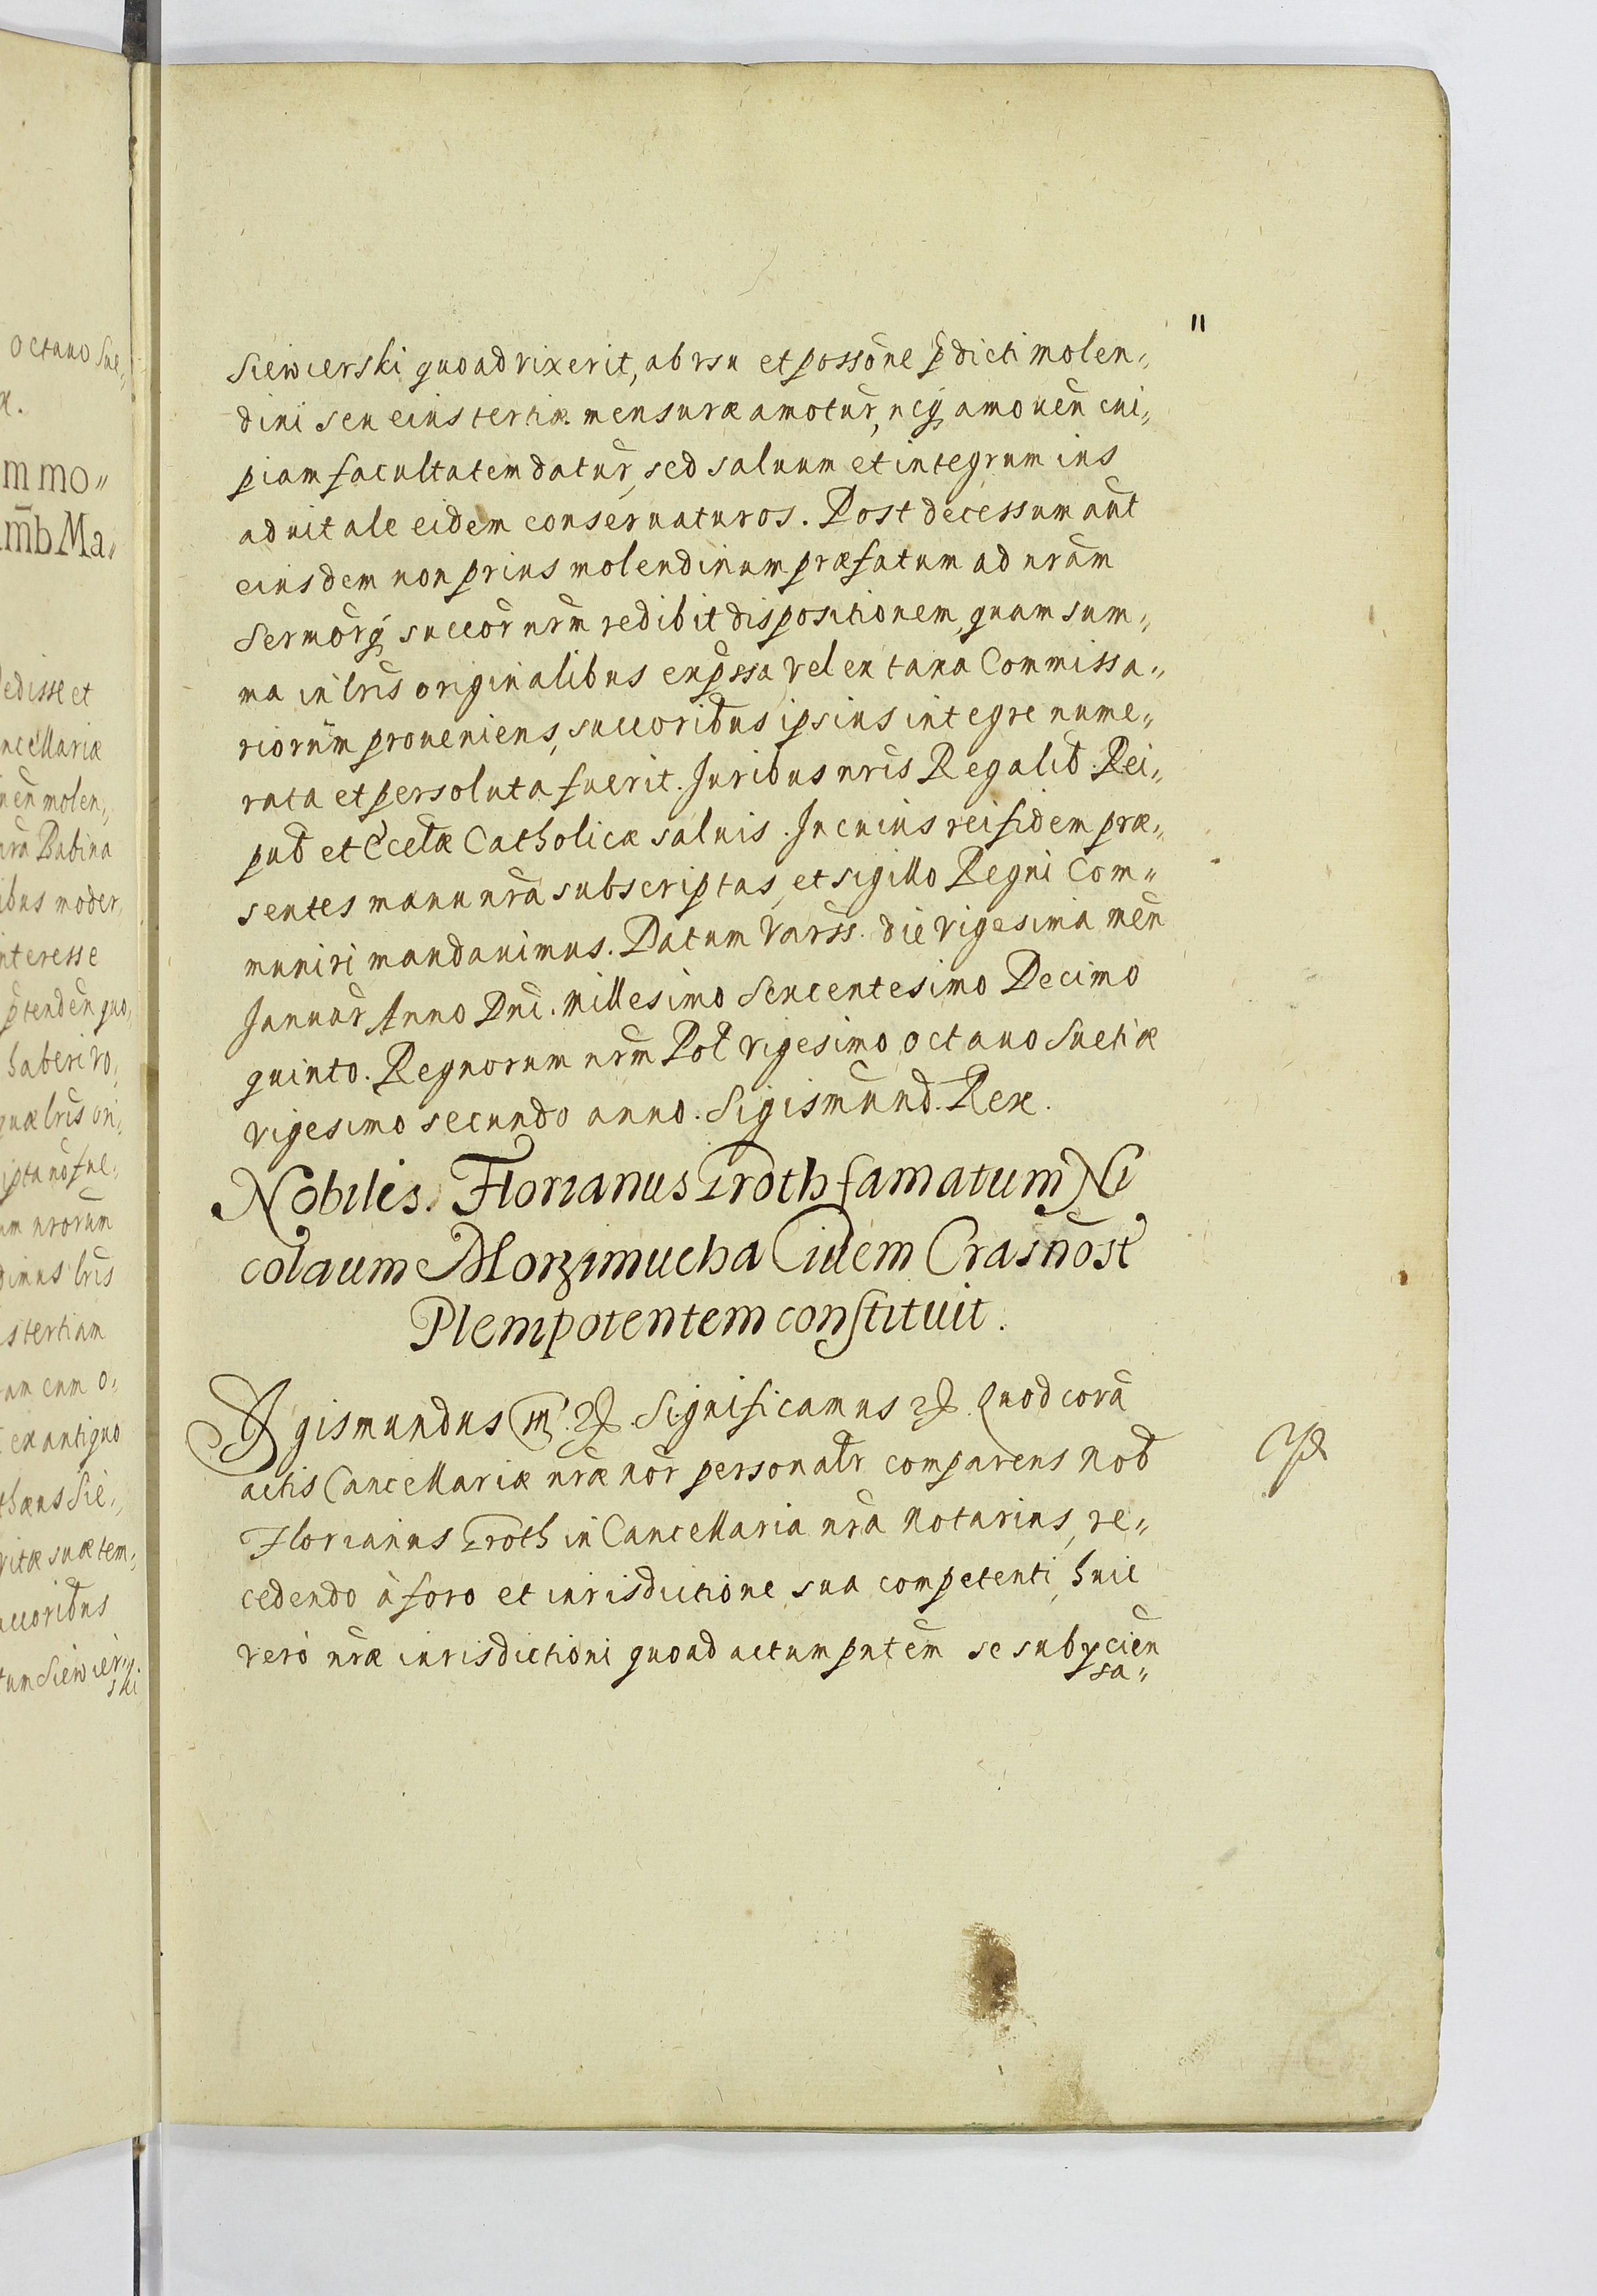 11
Siewierski quoad vixerit, ab vsu et possōne p̄dicti molen„
dini seu eius tertiæ mensuræ amotur̄, neq̨ amouen̄ cui„
piam facultatem datur̄, sed saluum et integrum ius
aduitale eidem conseruaturos. Post decessum aūt
eiusdem non prius molendinum præfatum ad nr̄am
Sermorq̨ succor̄ nrm̄ redibit dispositionem, quam sum„
ma in lr̄is originalibus exp̄ssa vel ex taxa Commissa„
riorum proueniens, succoribus ipsius integre nume„
rata et persoluta fuerit. Juribus nr̄is Regalib̄. Rei„
pub̄ et Eccl̄æ Catholicæ saluis. In cuius rei fidem præ„
sentes manu nr̄a subscriptas, et sigillo Regni Com„
muniri mandauimus. Datum Varss̄. die vigesima men̄
Januar̄ Anno Dn̄i. Millesimo Sexcentesimo Decimo
quinto. Regnorum nrm̄ Pol̄ vigesimo octauo Suetiæ
vigesimo secundo anno. Sigismund̄. Rex.
Nobiles. Florianus Troth famatum Ni
colaum Morzimucha Ciuem Crasnost̄
Plenipotentem constituit.
Sigismundus Significamus Quod corā
actis Cancellariæ nr̄æ nor̄ personalr̄ comparens Nob̄
Florianus Troth in Cancellaria nr̄a Notarius, re„
cedendo à foro et iurisdictione sua competenti, huic
verò nr̄æ iurisdictioni quoad actum pn̄tem se subÿcien̄
sa„